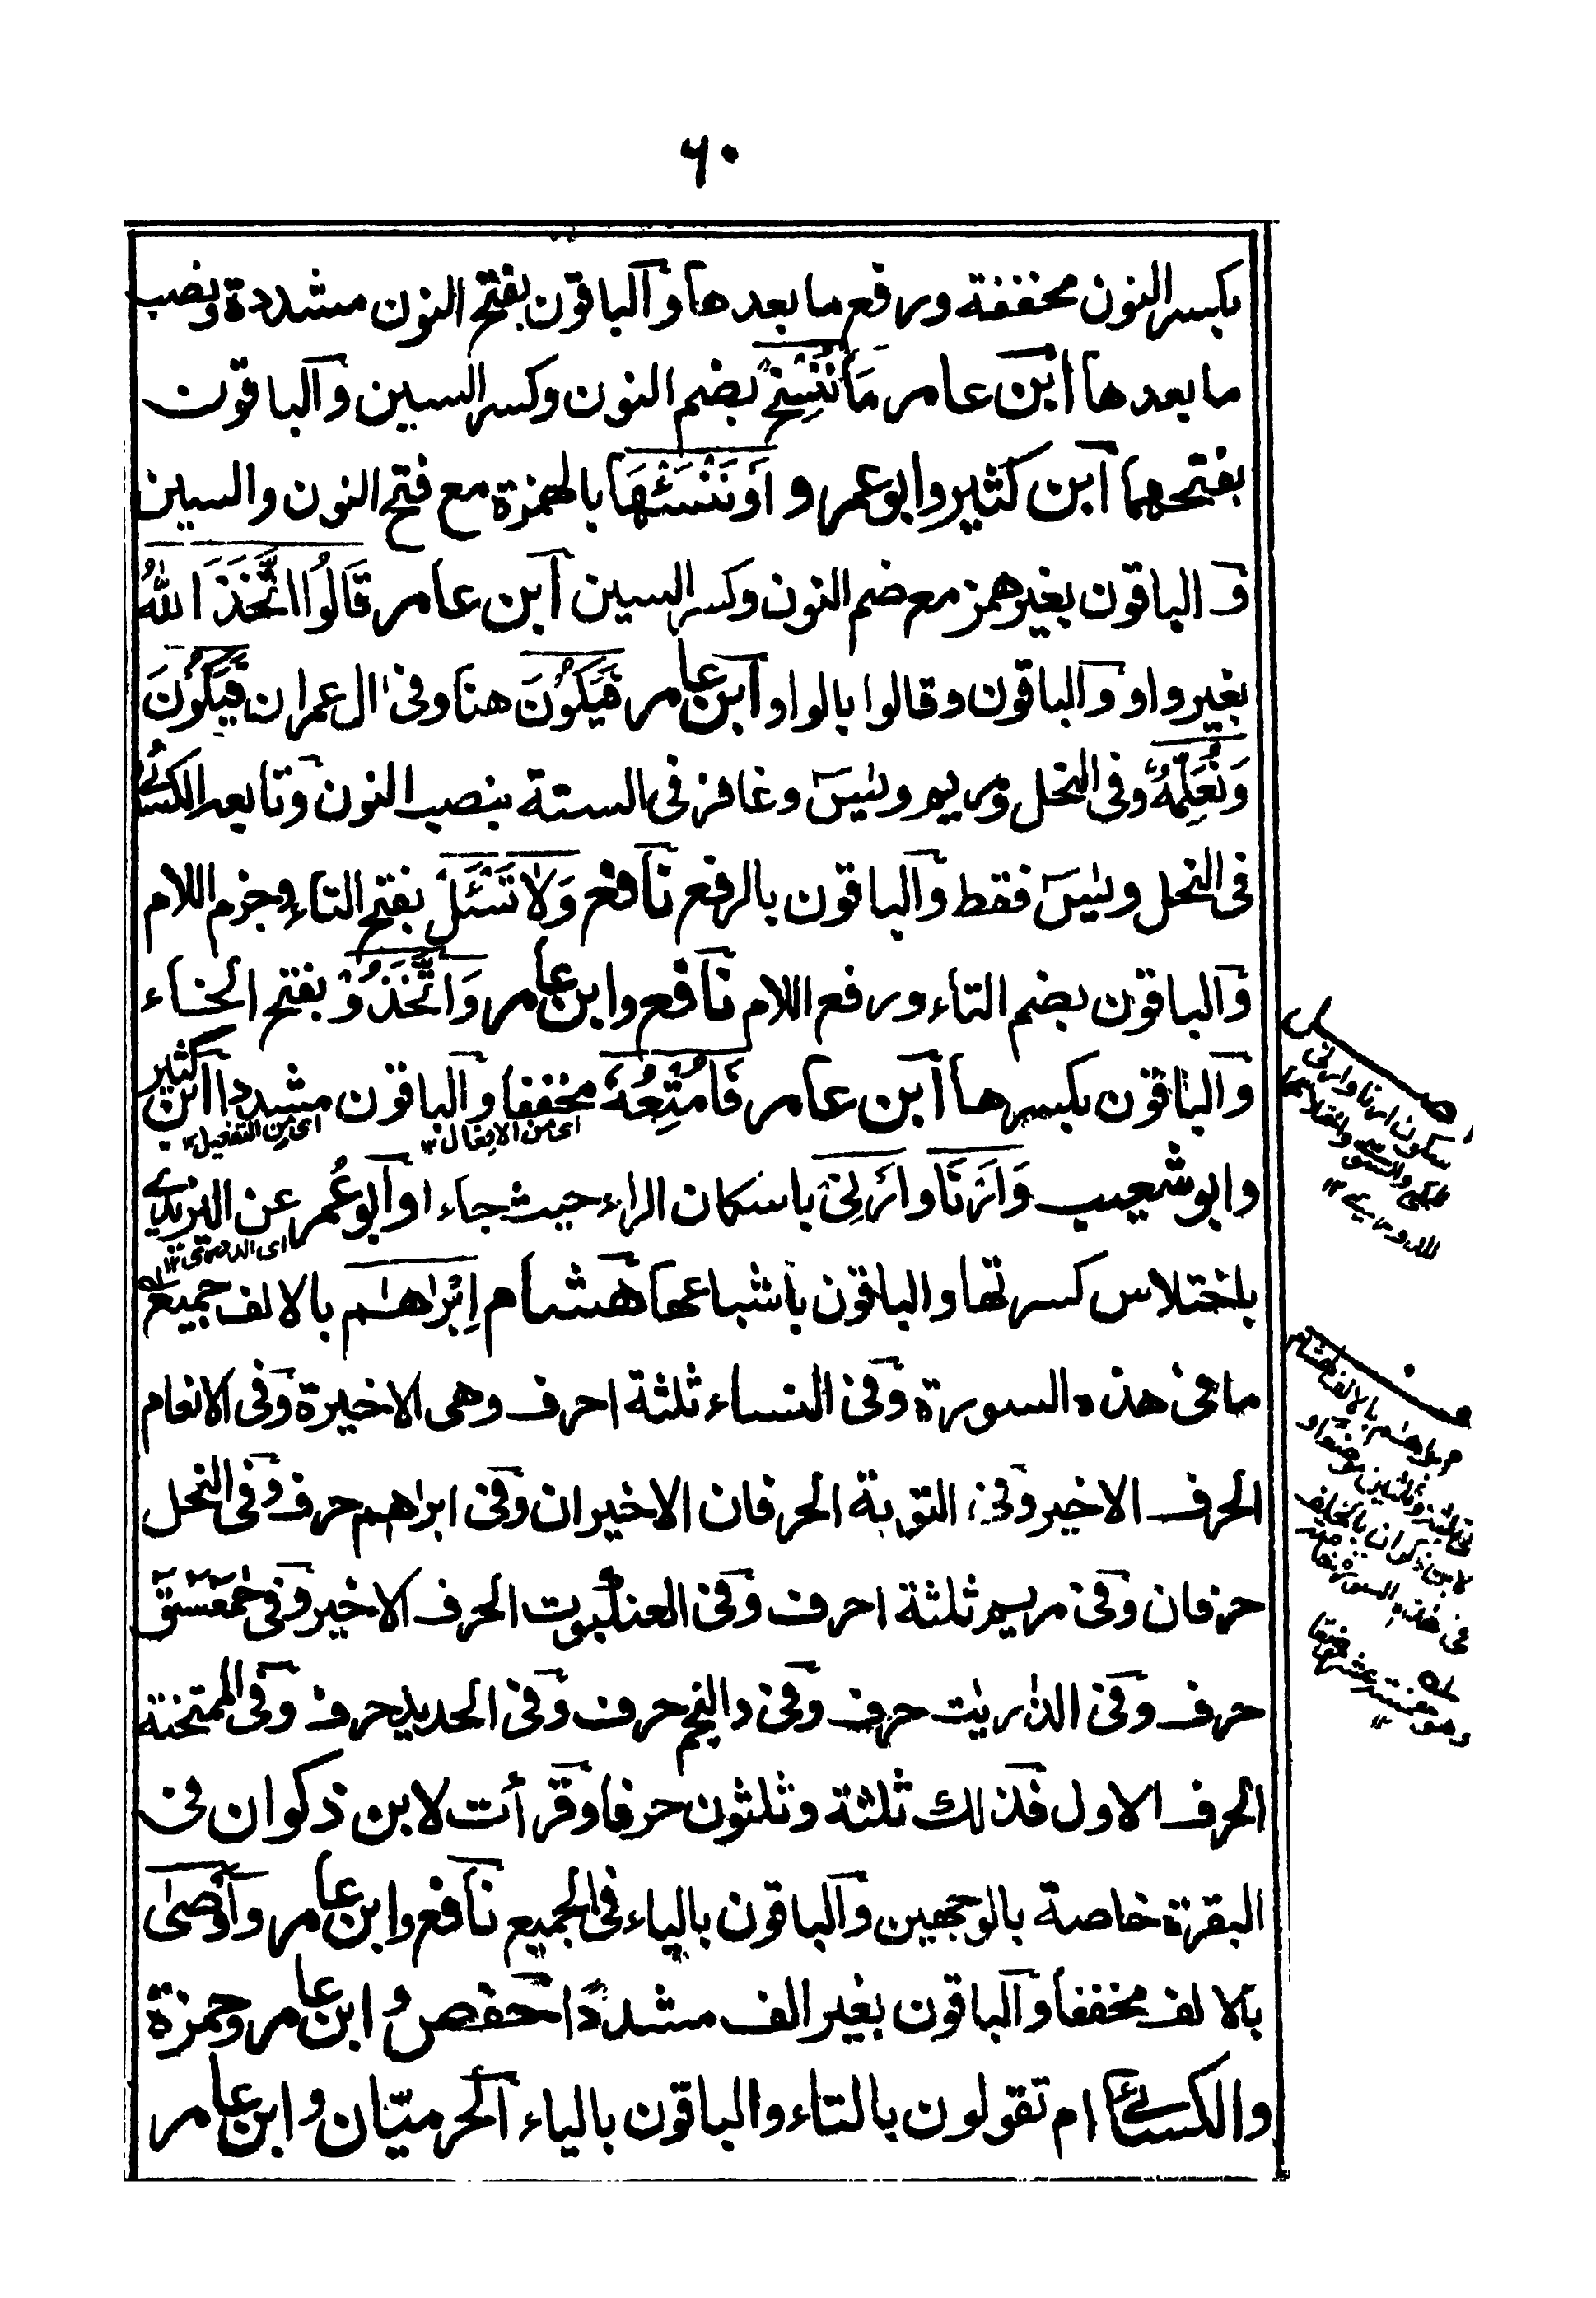 ٦٠
بكسر النون مخففة ورفع ما بعدها والباقون بفتح النون مشددة ونصب
ما بعدها ابن عامر مَا نُنْسِخْ بضم النون وكسر السين والباقون
بفتحهما ابن كثير وابو عمرو اَو نَنْسَئْهَا بالهمزة مع فتح النون والسين
والباقون بغير همز مع ضم النون وكسر السين ابن عامر قَالُوا اتَّخَذَ اللهُ
بغير واو والباقون وقالوا بالواو ابن عامر فَيَكُوْنَ هنا وفى اٰل عمران فَيَكُوْنَ
وَنُعَلِّمُهُ وفى النحل ومريم ويٰسٓ وغافر فى الستة بنصب النون وتابعه الكسائى
فى النحل ويٰسٓ فقط والباقون بالرفع نافع وَلَا تَسْئَلْ بفتح التاء وجزم اللام
والباقون بضم التاء ورفع اللام نافع وابن عامر وَاتَّخَذُوْ بفتح الخاء
والباقون بكسرها ابن عامر فَاُمْتِعُهٗ مخففا والباقون مشددا ابن كثير
اى من الافعال ١٢
اى من التفعيل ١٢
وابو شعيب وَاَرْنَا واَرْنِىْ باسكان الراء حيث جاءا وابو عُمر عن اليزيدى
اى الدورى ١٢
باختلاس كسرتها والباقون باشباعها هشام اِبْرَاهٰام بالالف جميع
ما فى هذه السورة وفى النساء ثلثة احرف وهى الاخيرة وفى الانعام
الحرف الاخير وفى التوبة الحرفان الاخيران وفى ابراهيم حرف وفى النحل
حرفان وفى مريم ثلثة احرف وفى العنكبوت الحرف الاخير وفى حٰمٓعٓسٓقٓ
حرف وفى الذٰريٰت حرف وفى والنجم حرف وفى الحديد حرف وفى الممتحنة
الحرف الاول فذلك ثلثة وثلثون حرفا وقرأت لابن ذكوان فى
البقرة خاصة بالوجهين والباقون بالياء فى الجميع نافع وابن عامر وَاَوْصٰى
بالالف مخففا والباقون بغير الف مشددًا حفص وابن عامر وحمزة
والكسائى ام تقولون بالتاء والباقون بالياء الحرميّان وابن عامر
سكون ارنا وارنى
للدورى ١٢
ابراهٰام بالالف لهشام
فى ثلثة وثلثين موضعا و
لابن ذكوان بالخلف
فى هذه السورة خاصة
وهو خمسة عشر موضعا ١٢